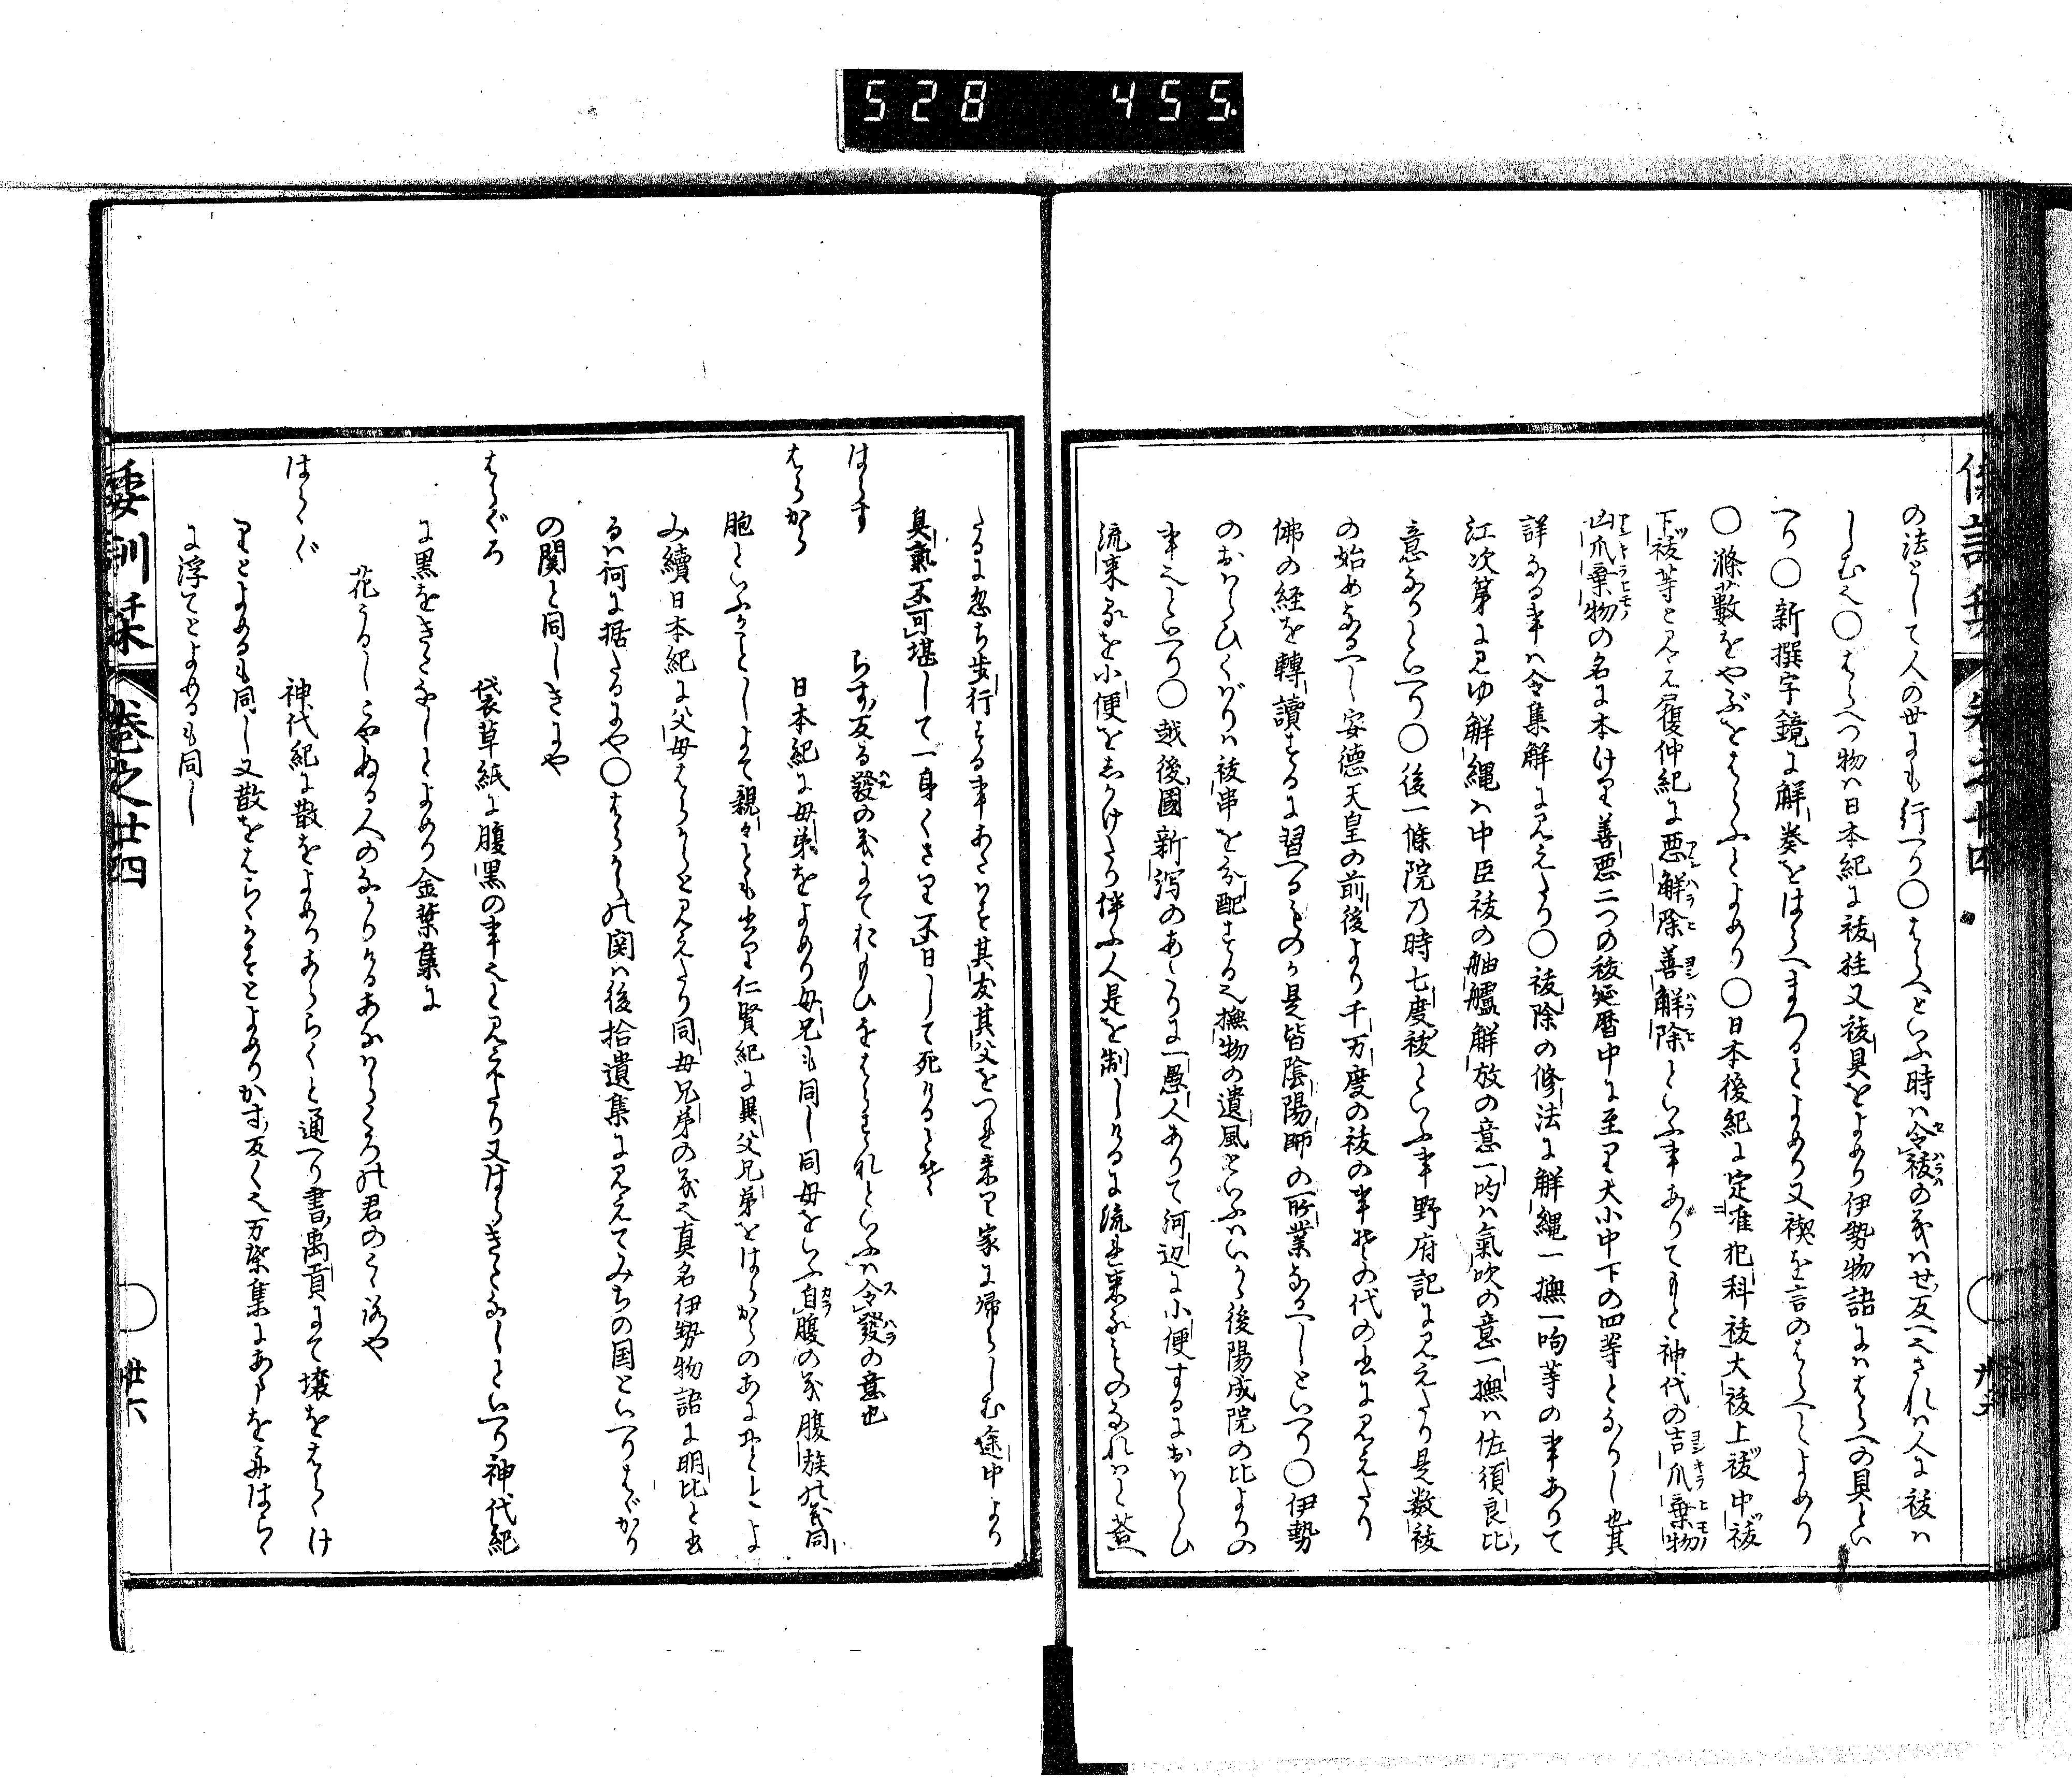 528 455
の法として人の世にも行へり〇はらへといふ時ハ令祓の義ハせ反へ也されハ人に祓ハ
しむ也〇はらへつ物ハ日本紀に祓柱又祓具をよめり伊勢物語にハはらへの具とい
へり〇新撰字鏡に解奏をはらへまつるとよめり又禊を言のはらへとよめり
〇滌藪をやぶをはらふとよめり〇日本後紀に定准犯科祓大祓上祓中祓
下祓等と見ゆ履仲紀に悪解除善解除といふ事ありてもと神代の吉爪棄物
凶爪棄物の名に本けり善悪二つの祓延暦中に至り大小中下の四等となりし也其
詳なる事ハ令集解に見えたり〇祓除の修法に解縄一撫一吻等の事ありて
江次第に見ゆ解縄ハ中臣祓の舳艫解放の意一吻ハ氣吹の意一撫ハ佐須良比
意なりといへり〇後一條院乃時七度祓といふ事野府記に見えたり是数祓
の始めなるへし安徳天皇の前後より千万度の祓の事其の代の書に見えたり
佛の経を轉讀するに習へるものか是皆陰陽師の所業なるへしといへり〇伊勢
のおはらひくばりハ祓串を分配する也撫物の遺風といふハいか後陽成院の比よりの
事也といへり〇越後國新潟のあたりに一愚人ありて河辺に小便するにおはらひ
流来るを小便をしかけたり伴ふ人是を制しけるに流れ来るものなれハと答へ
たるに忽ち歩行する事あたはす其友其父をつれ来り家に帰らしむ途中より
臭氣不可堪して一身くさり不日して死けるとそ
はらす らす反る發の義にておもひをはらすれといふハ令發の意也
はらから 日本紀に母弟をよめり母兄も同し同母をいふ自腹の義腹族の義同
胞といふかことしよて親々とも書り仁賢紀に異父兄弟をはらからのあにおとゝとよ
み續日本紀に父母はらからと見えたり同母兄弟の義也真名伊勢物語に明比と書
るハ何に据たるにや〇はらからの関ハ後拾遺集に見えてみちの国といへりはゞかり
の関と同しきにや
はらぐろ 袋草紙に腹黒の事也と見えたり又はらきたなしといへり神代紀
に黒をきたなしとよめり金葉集に
花うるしこやぬる人のなかりけるあなはらくろの君のこゝろや
はらゝぐ 神代紀に散をよめりあらゝくと通へり書禹貢にて壌をはらゝけ
りとよめるも同し又散をはらゝかすとよめりかす反く也万葉集にあまを舟はらゝ
に浮てとよめるも同し
倭訓栞 巻之廿四 廿六